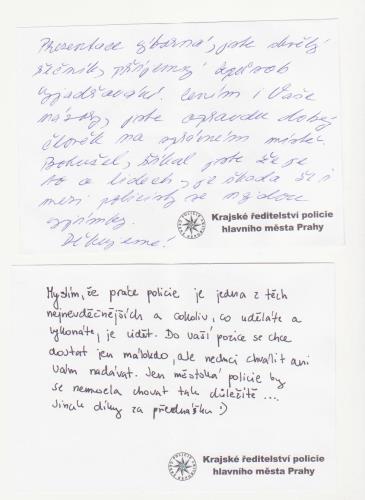 Prezentace výborná, jste skvělý
řečník, příjemný způsob
vyjadřování. Cením i Vaše
názory, jste opravdu dobrý
člověk na správném místě.
Bohužel, říkal jste že je
to o lidech, je škoda že i
mezi policisty se najdou
výjimky.
Děkujeme!
Krajské ředitelství policie
hlavního města Prahy
Myslím, že práce policie je jedna z těch
nejnevděčnějších a cokoliv, co uděláte a
vykonáte, je vidět. Do vaší pozice se chce
dostat jen málokdo, ale nechci chválit ani
Vám nadávat. Jen městská policie by
se nemusela chovat tak důležitě ...
Jinak díky za přednášku :)
Krajské ředitelství policie
hlavního města Prahy